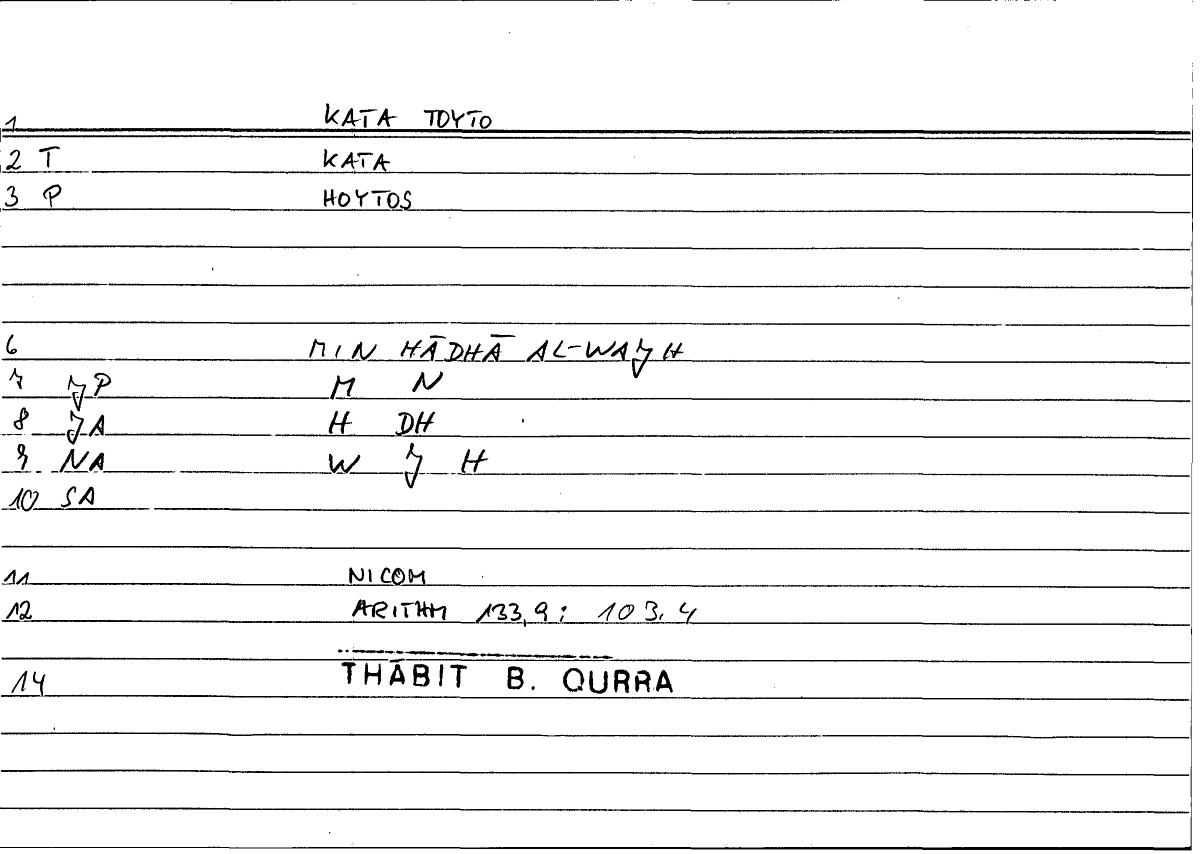 1 KATA TOYTO
2 T KATA
3 P HOYTOS
6 MIN HĀDHĀ AL-WAJH
7 JP M N
8 JA H DH
9 NA W J H
10 SA
11 NICOM
12 ARITHM 133,9: 103.4
14 THĀBIT B. QURRA